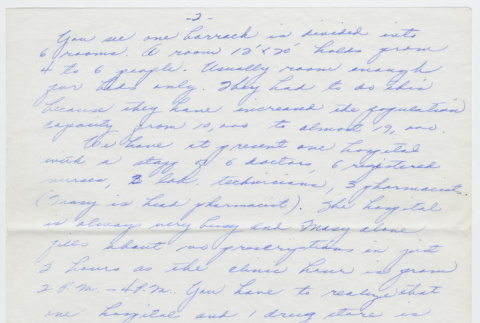 -2-
You see one barrack is divided into
6 rooms. A room 12'x20' holds from
4 to 6 people. Usually room enough
for beds only. They had to do this
because they have increased the population
capacity from 10,000 to almost 19,000.
We have at present one hospital
with a staff of 6 doctors, 6 registered
nurses, 2 lab. technicians, 3 pharmacists.
(Masy is head pharmacist). The hospital
is always very busy and Masy alone
fills about 40 prescriptions in just
2 hours as the clinic hour is from
2 P.M. - 4 P.M. You have to realize that
one hospital and 1 drug store is